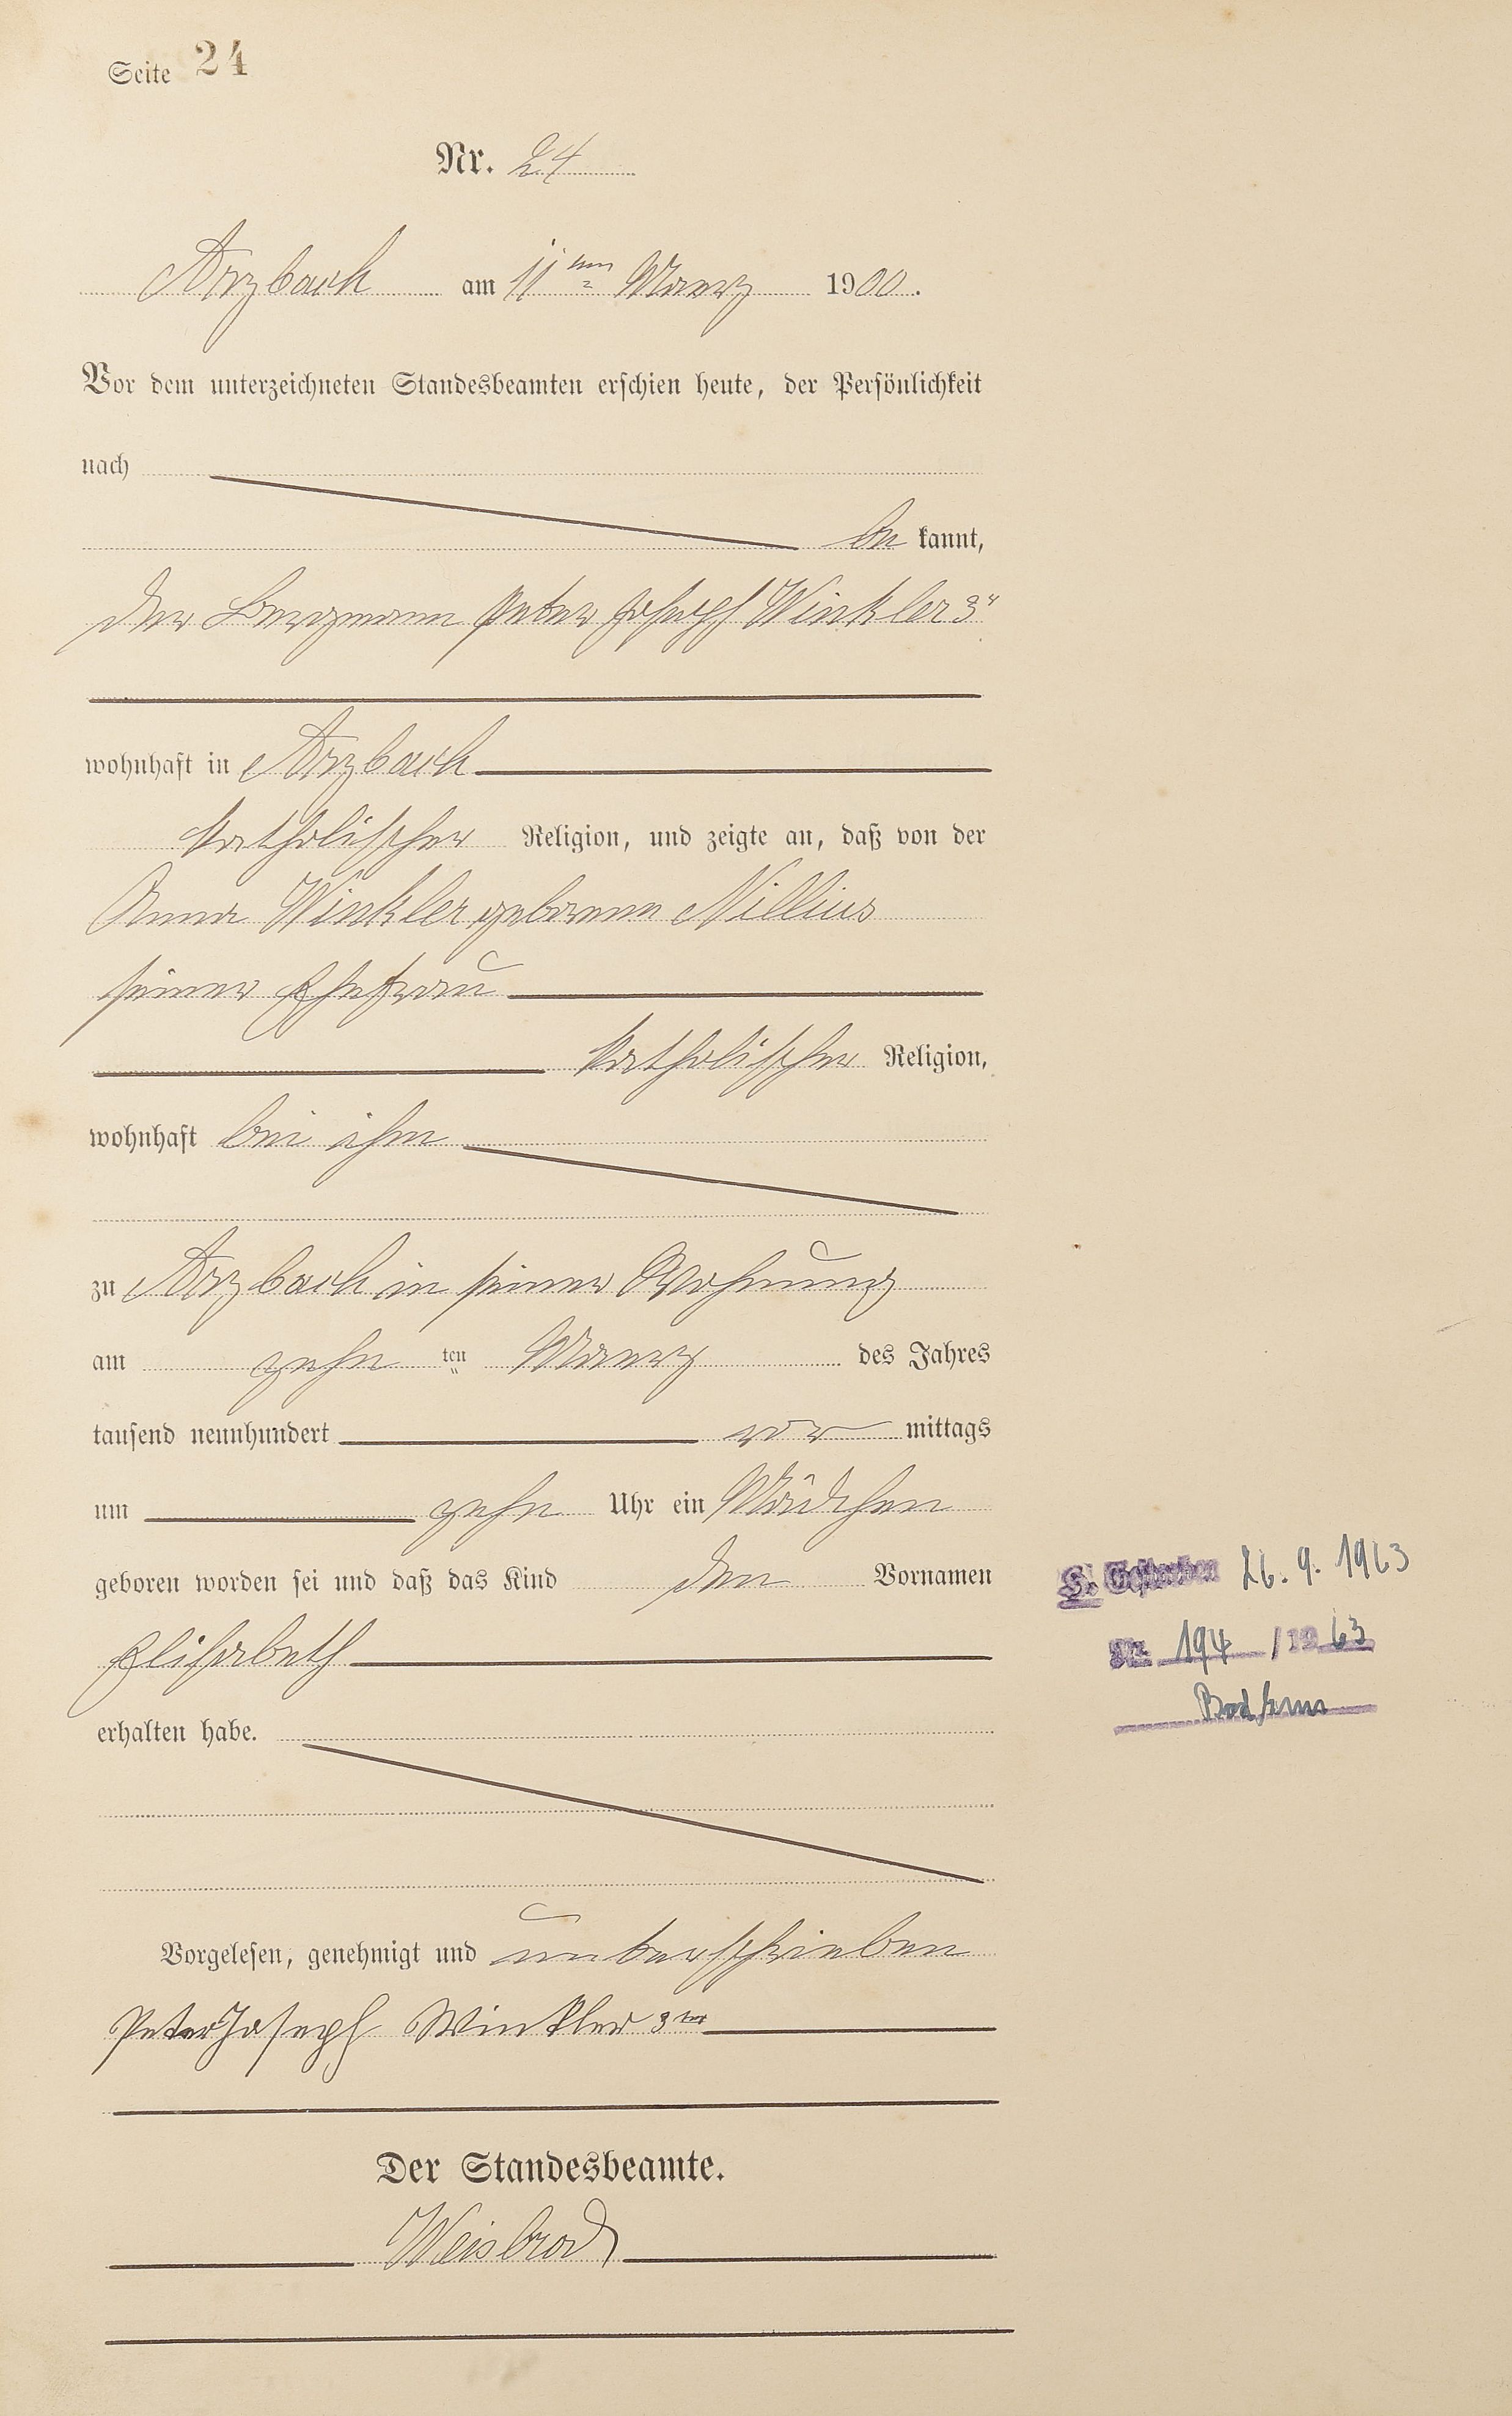 Seite 24
Nr. 24
Arzbach am 11ten Maerz 1900.
Vor dem unterzeichneten Standesbeamten erschien heute, der Persönlichkeit
nach
be kannt,
der Bergmann Peter Joseph Winkler 3r
wohnhaft in Arzbach
katholischer Religion, und zeigte an, daß von der
Anna Winkler geborene Nillius
seiner Ehefrau
katholischer Religion,
wohnhaft bei ihm
zu Arzbach in seiner Wohnung
am zehn ten Maerz des Jahres
tausend neunhundert vor mittags
um zehn Uhr ein Mädchen
geboren worden sei und daß das Kind den Vornamen
Elisabeth
erhalten habe.
Gestorben 26. 9. 1963
Nr. 194 / 1963
Bad Ems
Vorgelesen, genehmigt und unterschrieben
Peter Joseph Winkler 3ter
Der Standesbeamte.
Weisbrod